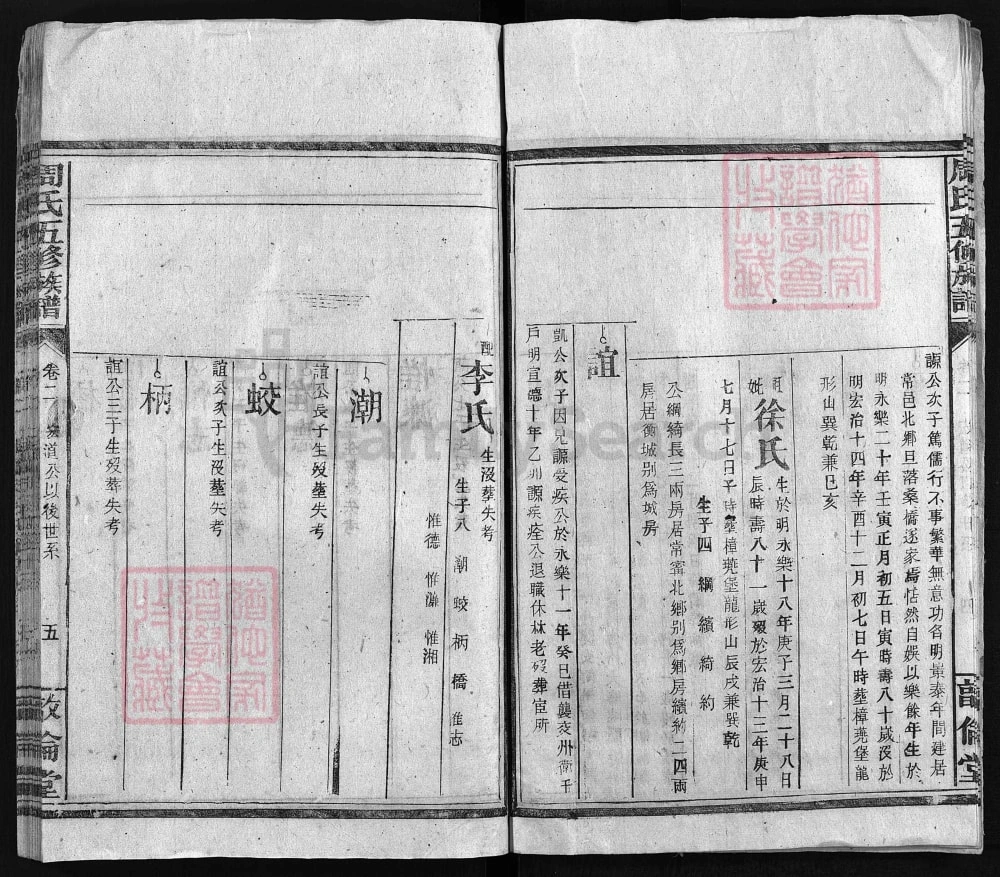 周氏五修族譜
源公次子篤儒行不事繁華無意功名明景泰年間建居
常邑北鄉旦落桑橋遂家焉恬然自娛以樂餘年生於
明永樂二十年壬寅正月初五日寅時壽八十歲沒於
明宏治十四年辛酉十二月初七日午時塟樟蕘堡龍
形山巽乾兼巳亥
配徐氏 生於明永樂十八年庚子三月二十八日
辰時壽八十一歲歿於宏治十三年庚申
七月十七日子時塟樟蕘堡龍形山辰戍兼巽乾
生子四 綱 繽 綺 約
公綱綺長三兩房居常甯北鄉别爲鄉房繽約二四兩
房居衡城别爲城房
誼
凱公次子因兄源受疾公於永樂十一年癸巳借襲交州衛千
戶明宣德十年乙卯源疾痊公退職休林老歿葬宦所
配李氏 生沒葬失考
生子八 潮 蛟 柄 橋 惟志
惟德 惟濂 惟湘
潮
誼公長子生歿塟失考
蛟
誼公次子生沒塟失考
柄
誼公三子生歿葬失考
周氏五修族譜
卷二 道公以後世系
五
敦倫堂
敦倫堂
猶他家
譜學會
收藏
猶他家
譜學會
收藏